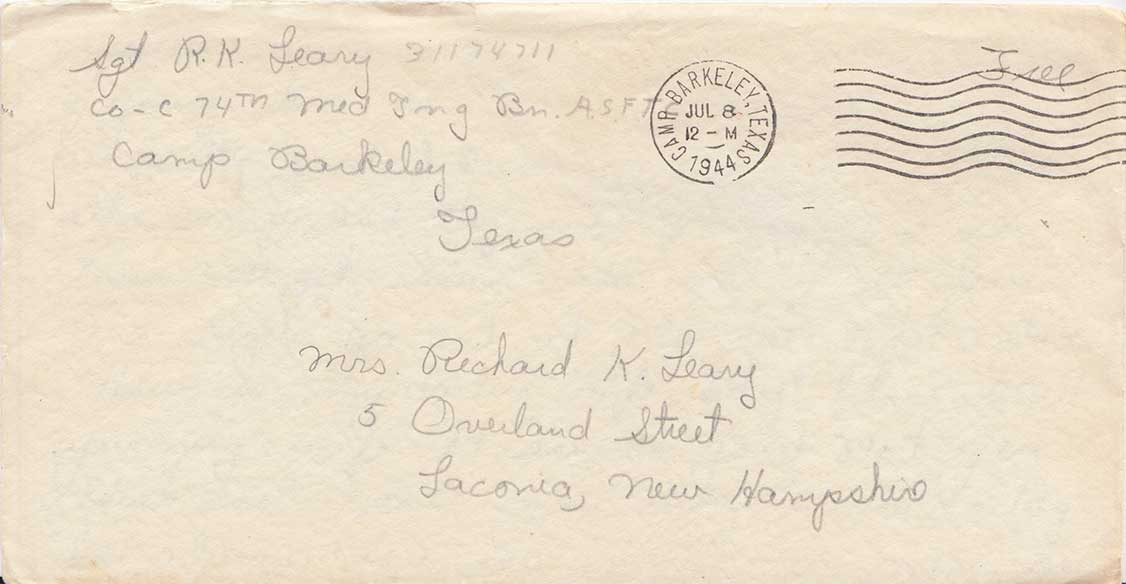 Sgt R.K. Leary 31174711
Co-C 74TH Med Tng Bn. A.S.F.T.C
Camp Barkeley
Texas
CAMP BARKELEY, TEXAS
JUL 8
12-M
1944
Free
Mrs. Richard K. Leary
5 Overland Street
Laconia, New Hampshire